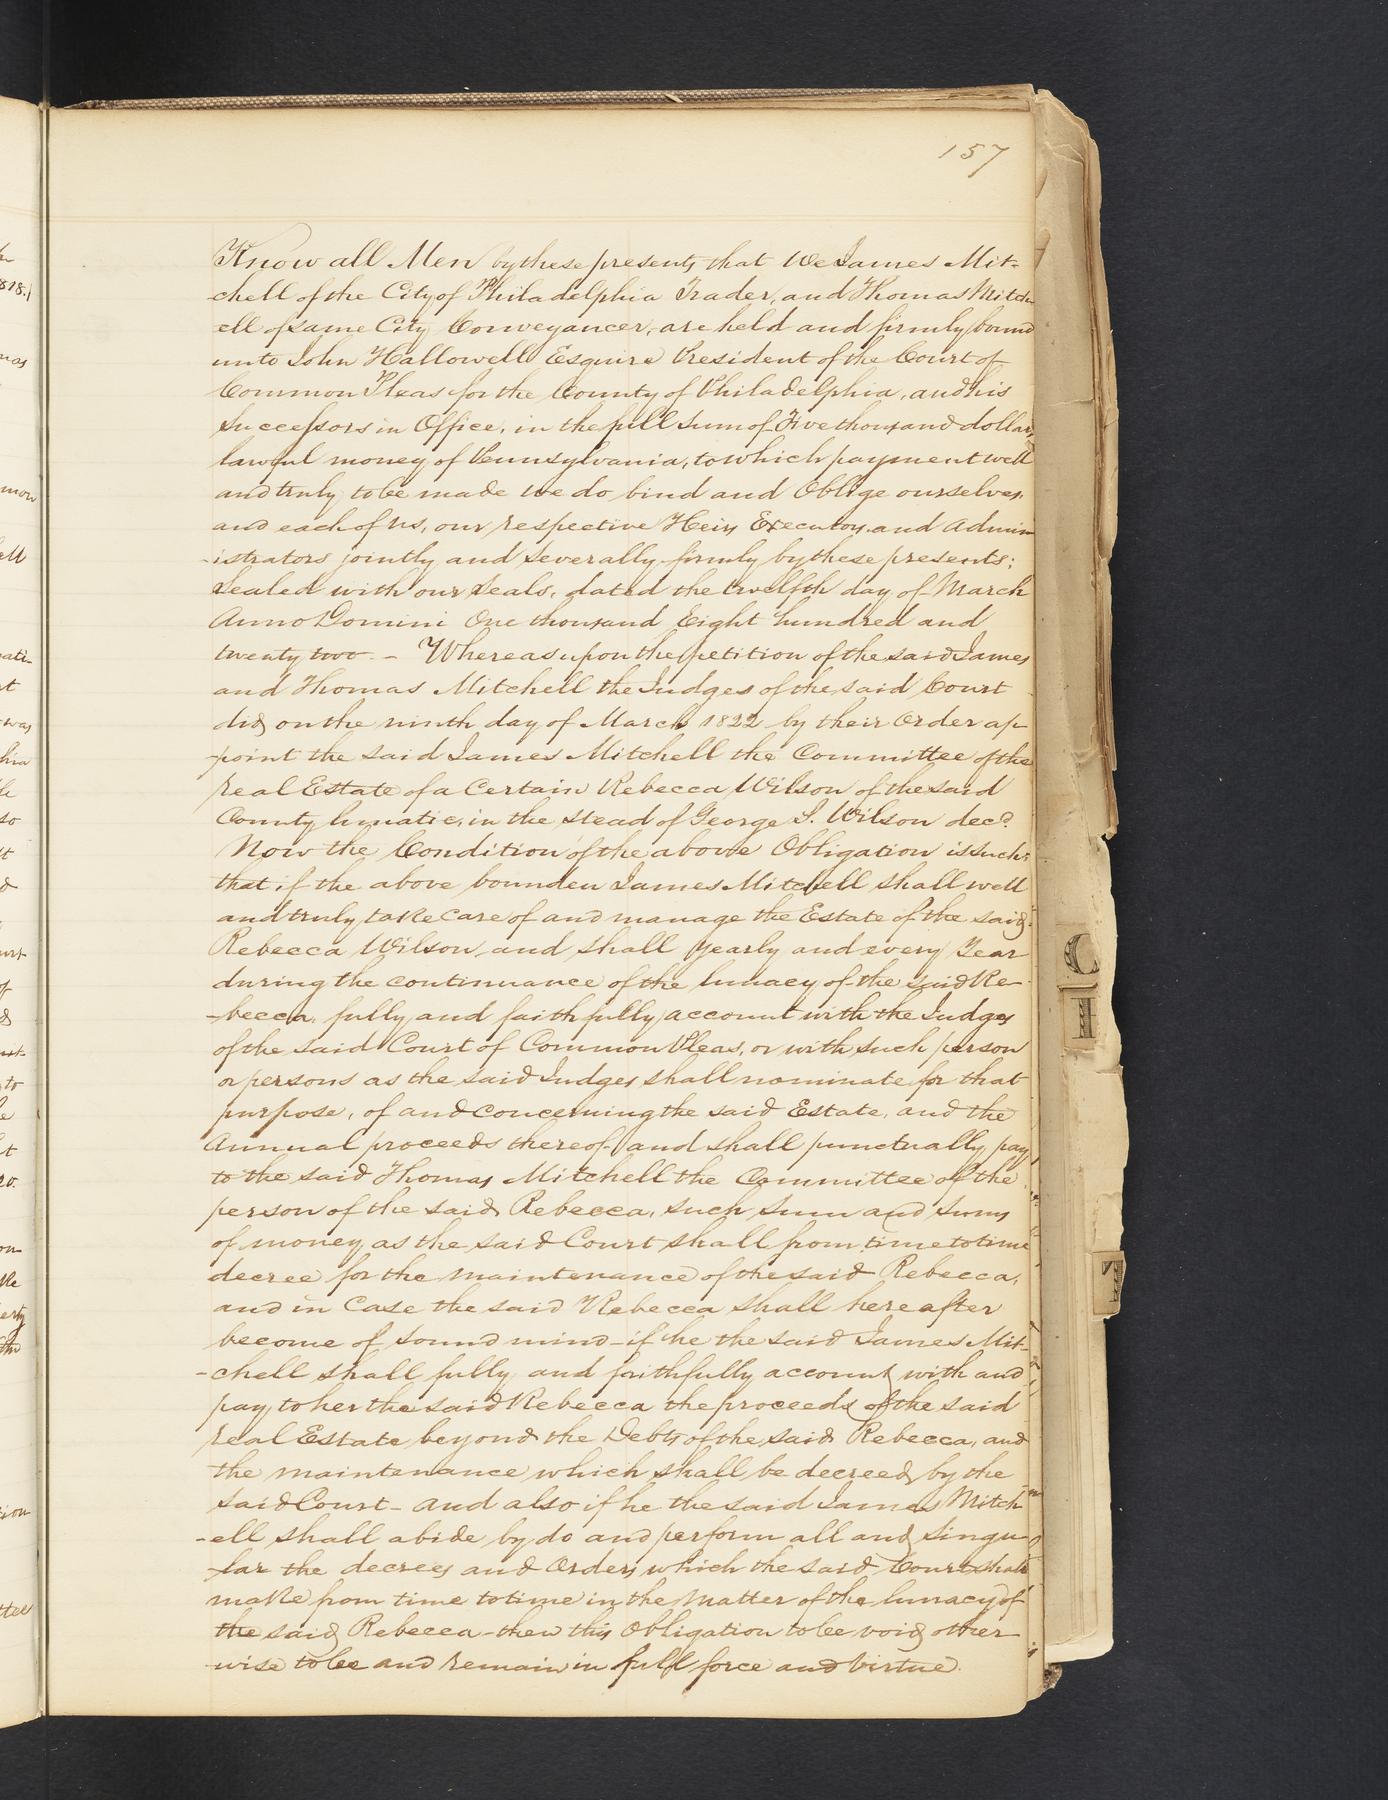 157
Know all Men by these presents that We James Mit-
-chell of the City of Philadelphia Trader, and Thomas Mitch-
ell of same City Conveyancer, are held and firmly bound
unto John Hallowell Esquire President of the Court of
Common Pleas for the County of Philadelphia, and his
Successors in Office, in the full Sum of Five thousand dollars
lawful money of Pennsylvania, to which payment well
and truly to be made we do bind and Oblige ourselves
and each of us, our respective Heirs Executors and Admin
-istrators jointly and Severally firmly by these presents;
Sealed with our Seals, dated the twelfth day of March
Anno Domini One thousand Eight hundred and
twenty two. - Whereas upon the petition of the said James
and Thomas Mitchell the Judges of the said Court
did on the ninth day of March 1822 by their Order ap-
-point the said James Mitchell the Committee of the
real Estate of a Certain Rebecca Wilson of the said
County lunatic, in the stead of George S. Wilson decd.
Now the Condition of the above Obligation is such;
that if the above bounden James Mitchell shall well
and truly take care of and manage the Estate of the said
Rebecca Wilson, and shall yearly and every Year
during the continuance of the lunacy of the said Re-
-becca, fully and faithfully account with the Judges
of the said Court of Common Pleas, or with such person
or persons as the said Judges shall nominate for that
purpose, of and concerning the said Estate, and the
Annual proceeds thereof and shall punctually pay
to the said Thomas Mitchell the Committee of the
person of the said Rebecca, such Sum and Sums
of money as the said Court shall from time to time
decree for the maintenance of the said Rebecca,
and in Case the said Rebecca shall hereafter
become of sound mind - if he the said James Mit-
-chell shall fully and faithfully account with and
pay to her the said Rebecca the proceeds of the said
real Estate beyond the Debts of the said Rebecca, and
the maintenance which shall be decreed by the
said Court - and also if he the said James Mitch
-ell shall abide by do and perform all and Singu-
-lar the decrees and Orders which the said Court shall
make from time to time in the Matter of the lunacy of
the said Rebecca - then this Obligation to be void other
-wise to be and remain in full force and Virtue.
C
I
T